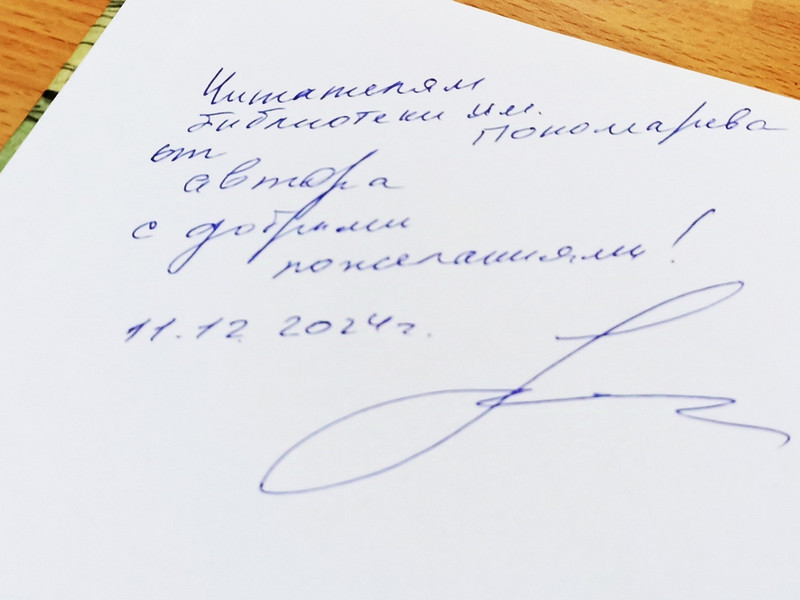 Читателям
библиотеки им. Пономарева
от
автора
с добрыми
пожеланиями!
11.12 2024г.